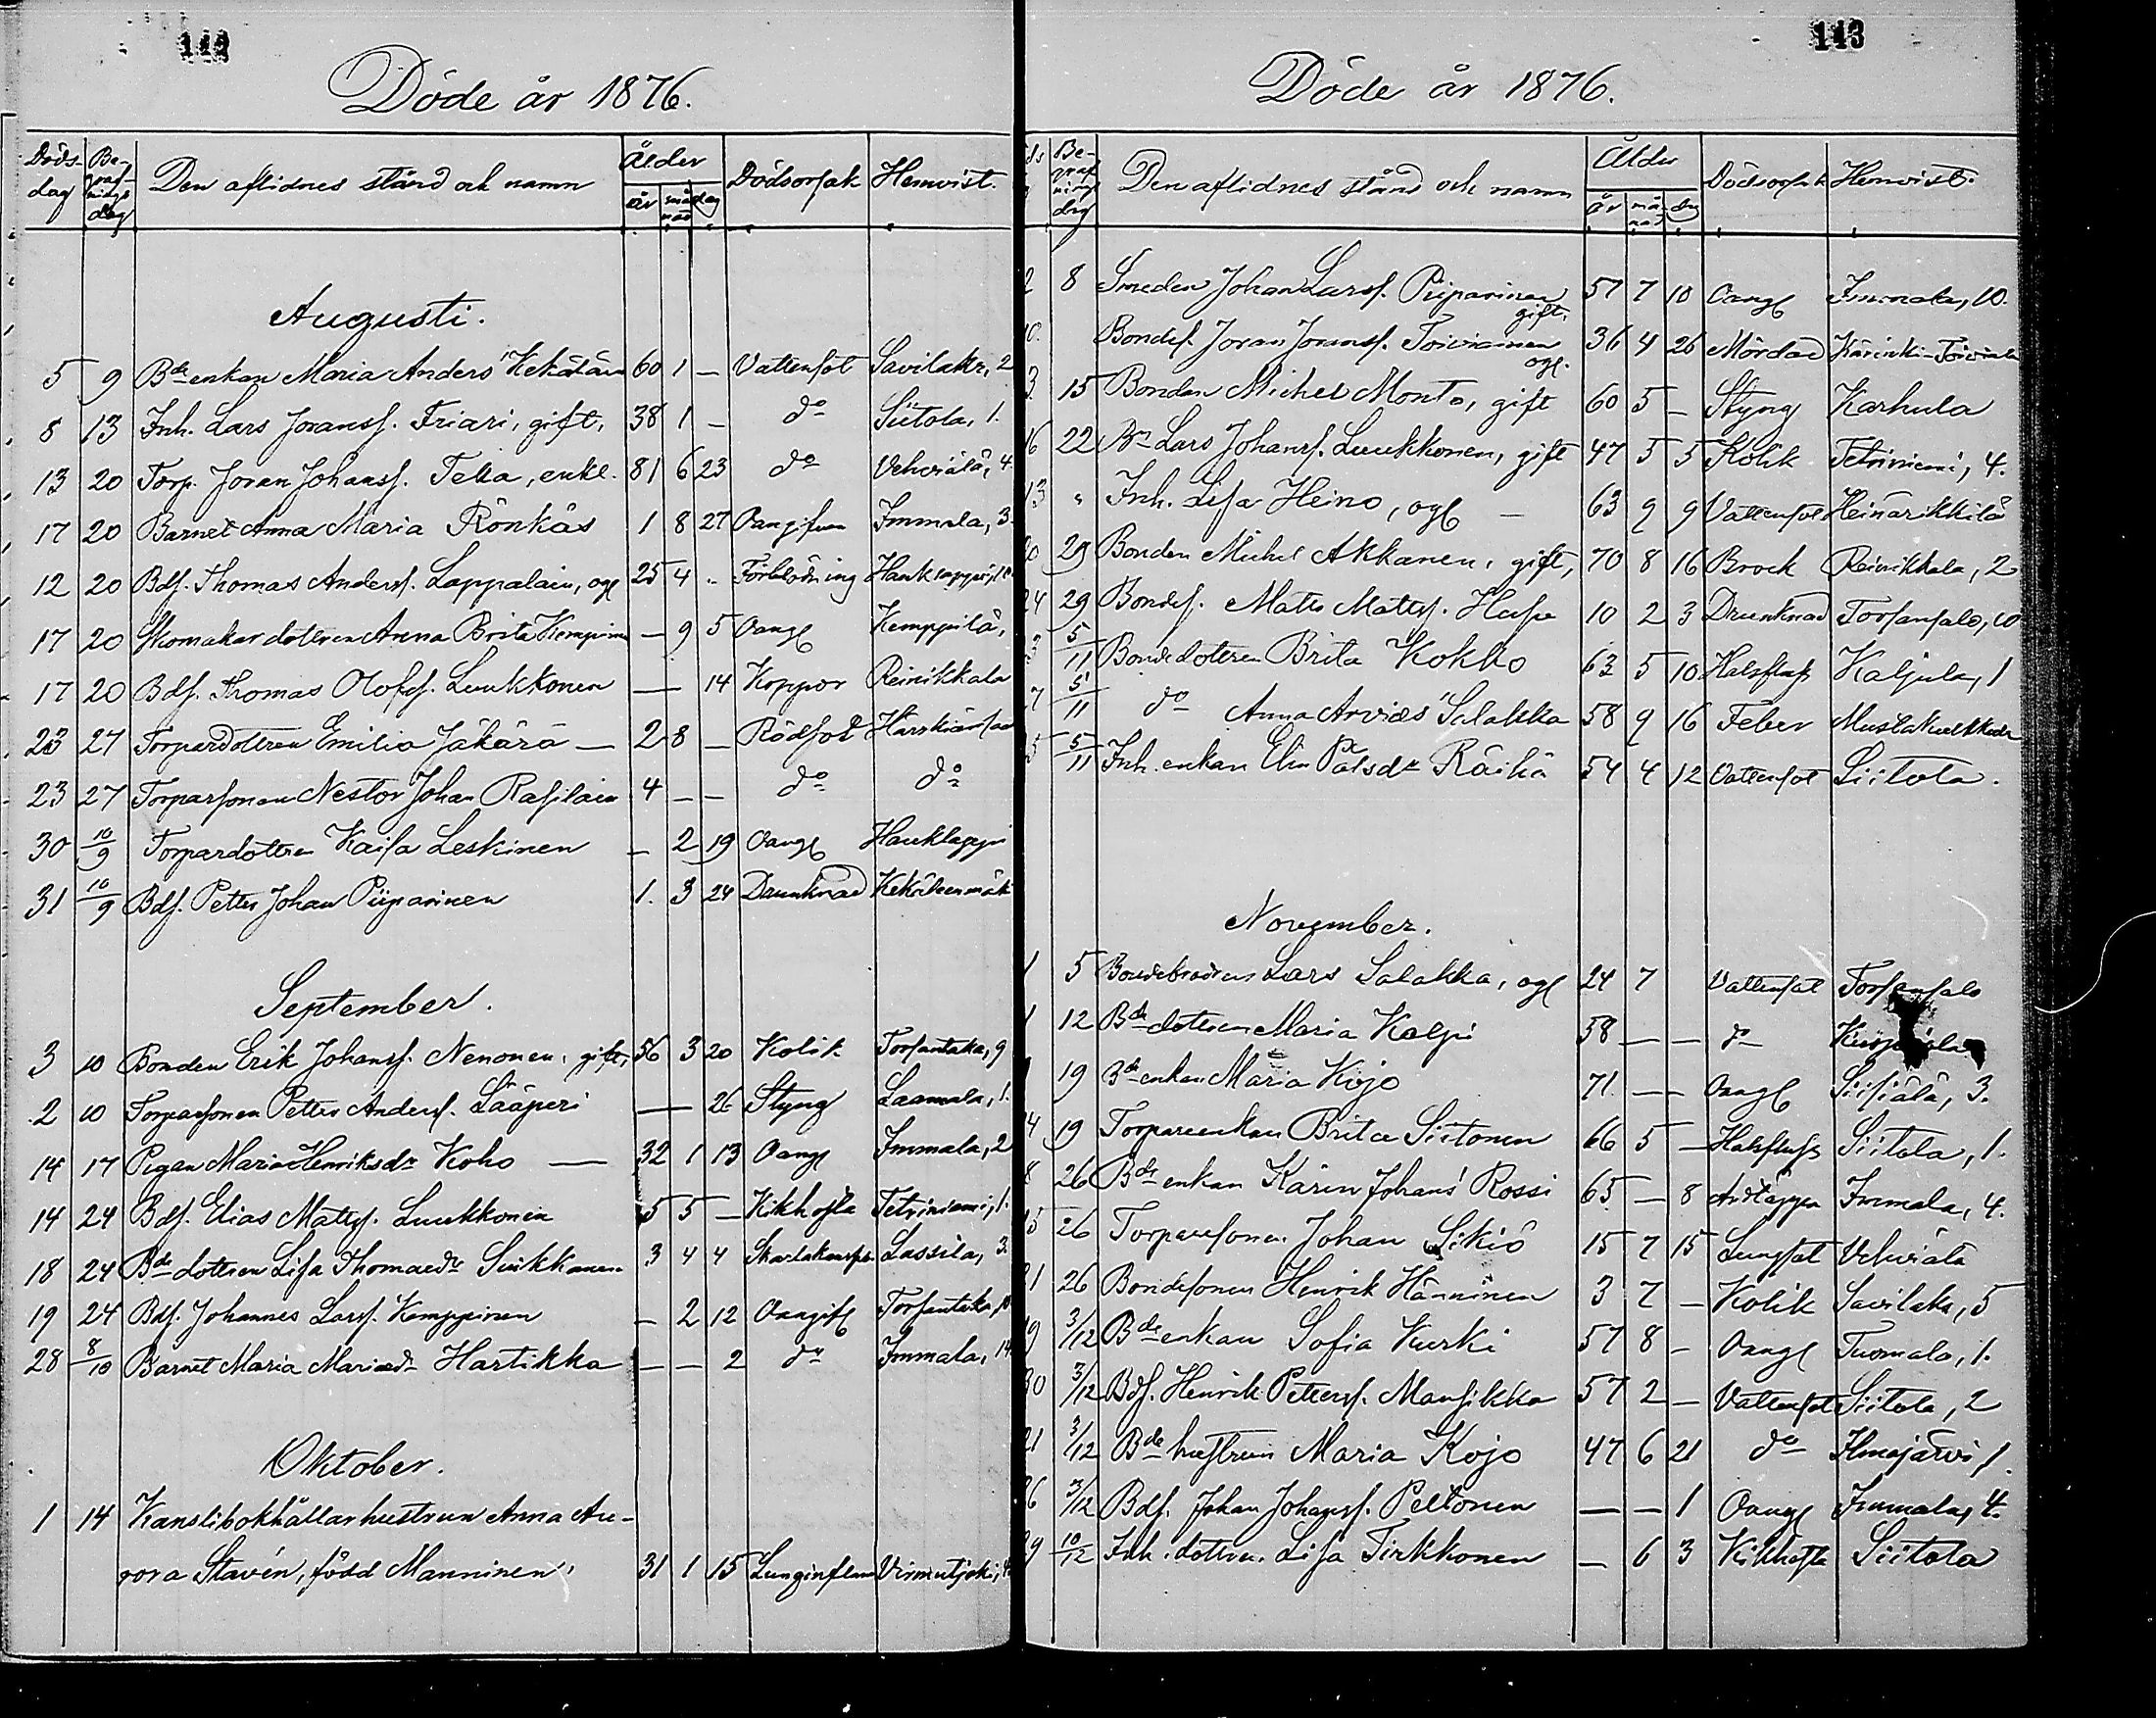 142
Döde år 1876.
Döds-dag Be-graf-nings dag Den aflidnes stånd och namn Ålder år må-nad dag Dödsorsak Hemvist.
Augusti.
5 9 Bde enkan Maria Anders' Kekäläin 60 1 — Vattensot Savilaks, 2
8 13 Inh. Lars Joransf. Friari, gift, 38 1 — do Siitola, 1.
13 20 Torp. Joran Johansf. Tella, enkl. 81 6 23 do Vehviälä, 4.
17 20 Barnet Anna Maria Rönkäs 1 8 27 Oangifven Immala, 3.
12 20 Bdf. Thomas Andersf. Lappalain, ogf 25 4 „ Förblödning Hauklappi, 10
17 20 Skomakardottren Anna Brita Kempinen — 9 5 Oangf Kemppilä,
17 20 Bdf. Thomas Olofsf. Luukkonen — 14 Koppor Reinikkala
23 27 Torpardottren Emilia Jäkärä — 2 8 — Rödsot Härskiänsaa
23 27 Torparsonen Nestor Johan Rasilain 4 — — do do
30 10/9 Torpardottren Kaisa Leskinen — 2 19 Oangf Hauklappi
31 10/9 Bdf. Petter Johan Piiparinen 1. 3 24 Drunknad Kekäleenmäk
September.
3 10 Bonden Erik Johansf. Nenonen, gift, 56 3 20 Kolik Torsantaka, 9
2 10 Torparsonen Petter Andersf. Lääperi — 26 Styng Laamala, 1.
14 17 Pigan Maria Henriksdr Koho — 32 1 13 Oangf Immala, 2
14 24 Bdf. Elias Mattsf. Luukkonen 5 5 — Kikhosta Tetriniemi, 1.
18 24 Bde dottren Lisa Thomaedr Suikkanen 3 4 4 Skarlakansfeb. Lassila, 3.
19 24 Bdf. Johannes Larsf. Kemppinen — 2 12 Oangiff Torsantaka, 10
28 8/10 Barnet Maria Mariaedr Hartikka — — 2 do Immala, 14
Oktober.
1 14 Kanslibokhållarhustrun Anna Au-
rora Stavén, född Manninen, 31 1 15 Lunginflam Virmutjoki, 4
143
Döde år 1876.
Be-graf-nings dag Den aflidnes stånd och namn Ålder år må-nad dag Dödsorsak Hemvist.
2 8 Smeden Johan Larsf. Piiparinen gift. 57 7 10 Oangf Immala, 10.
10. Bondef. Joran Joransf. Toiviainen ogf. 36 4 26 Mördad Kärinki-Toiviala
3. 15 Bonden Michel Monto, gift 60 5 — Styng Karhula
16 22 Bn Lars Johansf. Luukkonen, gift 47 5 5 Kolik Tetriniemi, 4.
13 „ Inh. Lisa Heino, ogf — 63 9 9 Vattensot Heinärikkilä
20 29 Bonden Michel Akkanen, gift, 70 8 16 Brock Reinikkala, 2
24 29 Bondef. Matts Mattsf. Husu 10 2 3 Drunknad Torsansalo, 10
23 5/11 Bondedottren Brita Kokko 63 5 10 Halsfluss Kaljula, 1
7 5/11 do Anna Arvids' Salakka 58 9 16 Feber Mustakulkkula
25 5/11 Inh. enkan Elin Pålsdr Räihä 54 4 12 Vattensot Siitola.
November.
1 5 Bondebrodren Lars Salakka, ogf 24 7 Vattensot Torsansalo
1 12 Bde dottren Maria Kalpi 58 — — do
19 Bde enkan Maria Kojo 71. — — Oangf Siisiälä, 3.
14 19 Torpareenkan Brita Siitonen 66 5 — Halsfluss Siitola, 1.
8 26 Bde enkan Karin Johans' Rossi 65 — 8 Andtäppa Immala, 4.
15 26 Torparesonen Johan Sikiö 15 7 15 Lungsot Vehviälä
21 26 Bondesonen Henrik Hänninen 3 7 — Kolik Savilaks, 5
19 3/12 Bde enkan Sofia Kurki 57 8 — Oangf Tuomala, 1.
30 3/12 Bdf. Henrik Pettersf. Mansikka 57 2 — Vattensot Siitola, 2
21 3/12 Bde hustrun Maria Kojo 47 6 21 do Ilmajärvi, 1.
26 3/12 Bdf. Johan Johansf. Peltonen — — 1 Oangf Immala, 4.
29 10/12 Inh. dottren Lisa Tirkkonen — 6 3 Kikhosta Siitola